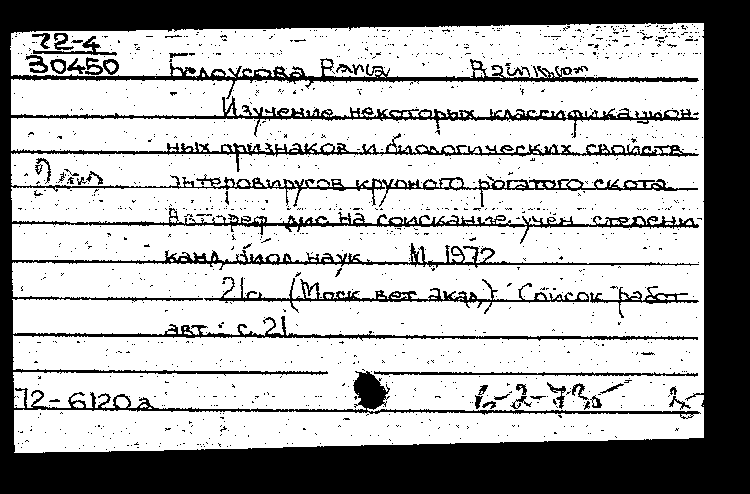 72-4
30450
Белоусова, Раиса
Изучение некоторых классификацион-
ных признаков и биологических свойств
энтеровирусов крупного рогатого скота
Автореф дис на соискание учен степени
канд. биол. наук. М., 1972.
21с. (Моск вет акад.) Список работ
авт.: с. 21
72-6120а